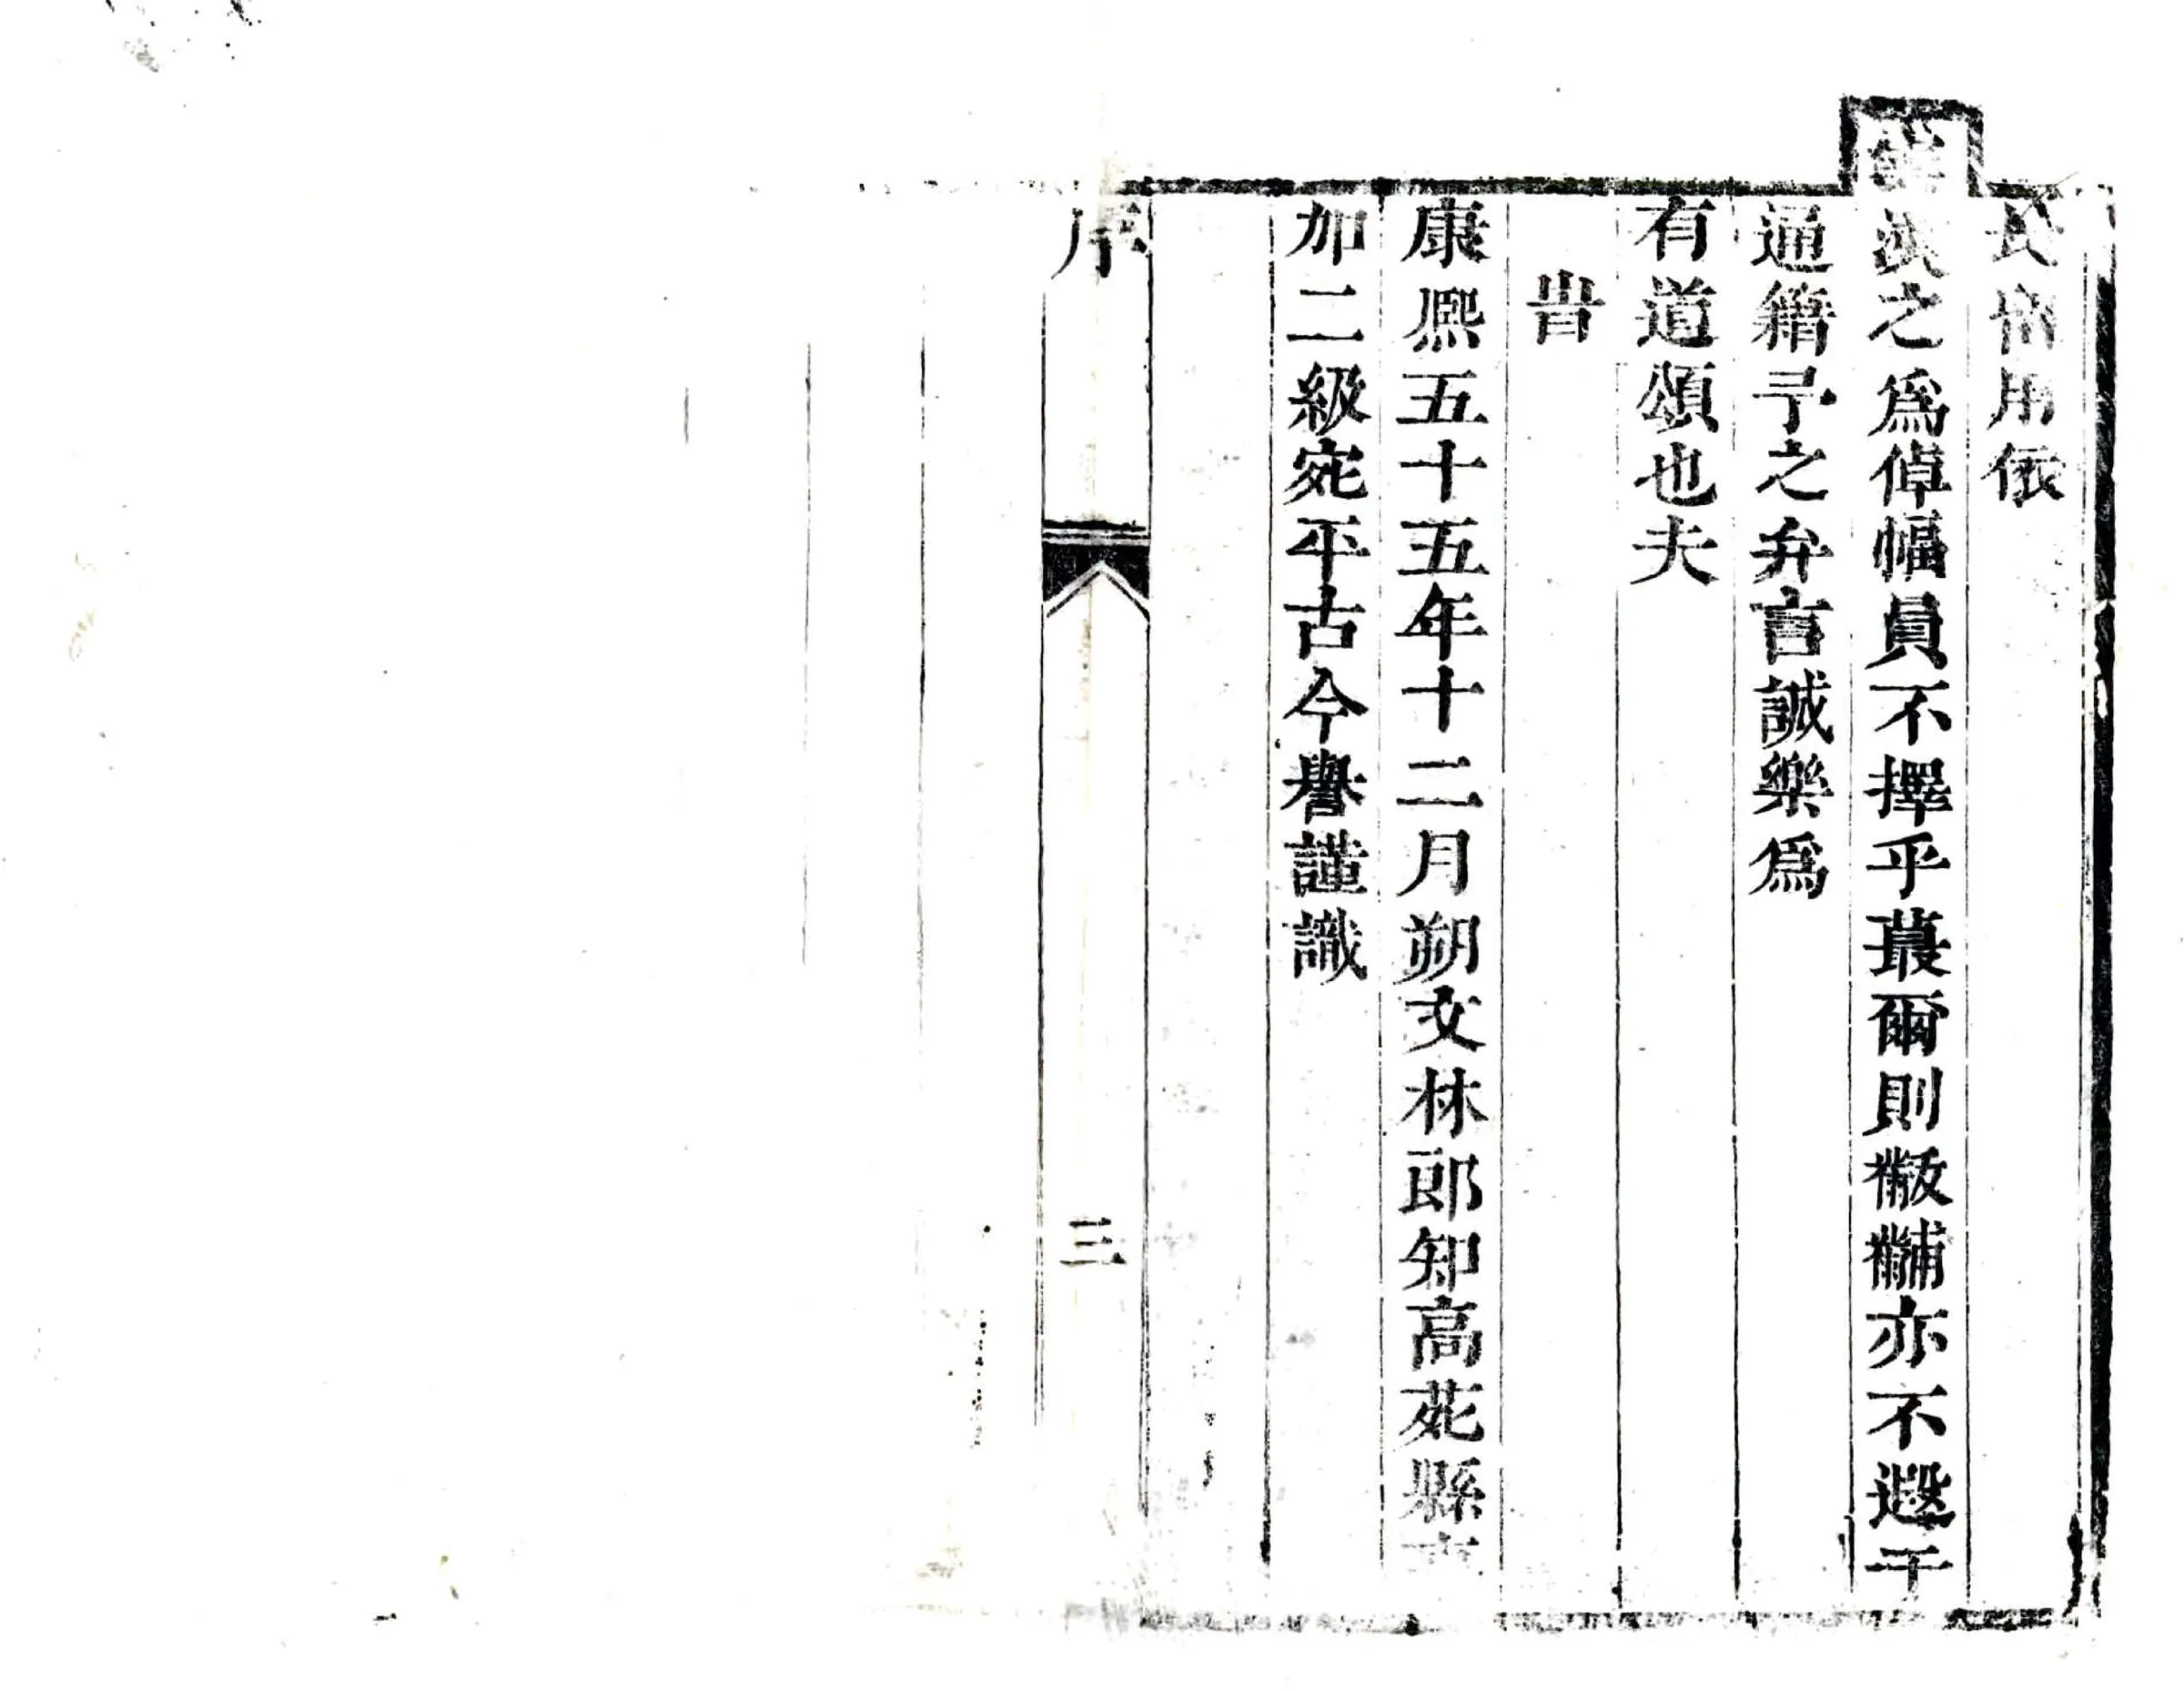 民畱用依
漢之爲倬幅員不擇乎蕞爾則黻黼亦不遐于
通籍予之弁言誠樂爲
有道頌也夫
旹
康熙五十五年十二月朔文林郎知高苑縣事
加二級宛平古今譽謹識
序
三